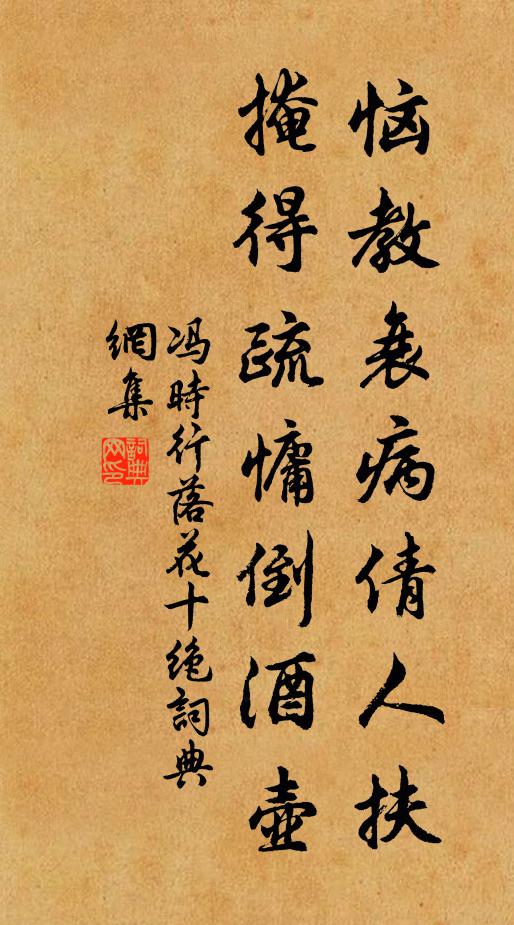 恼教衰病倩人扶
掩得疏慵倒酒壶
冯時行落花十绝詞典
網集
詞典網印